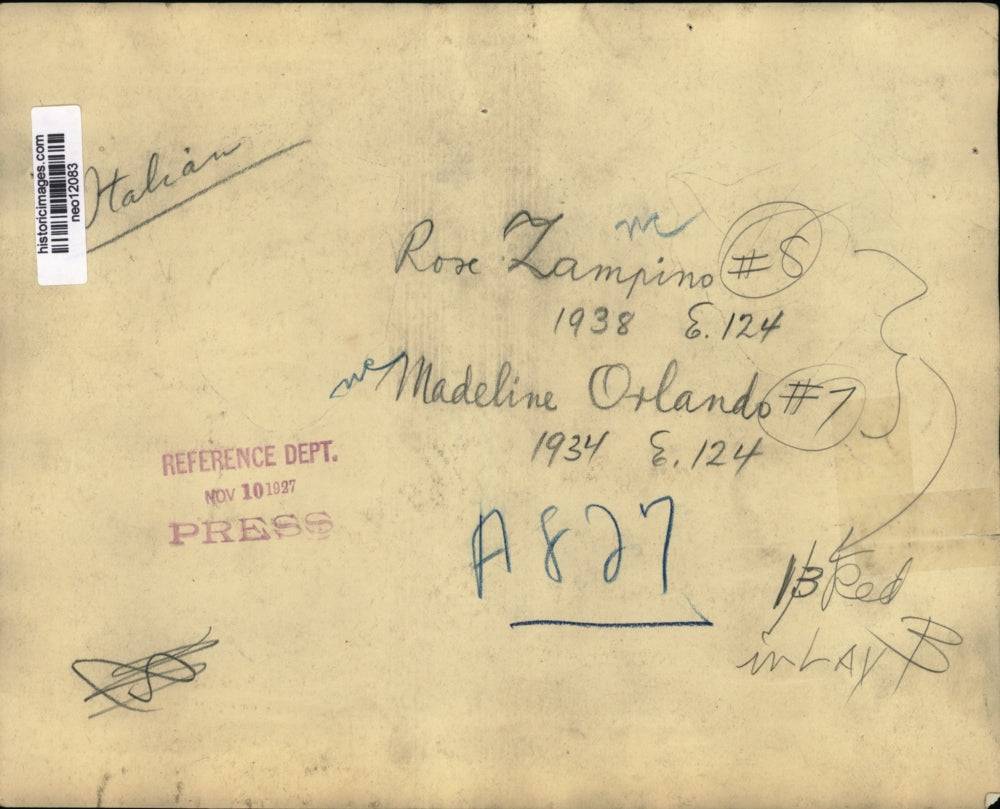 historicimages.com
neo12083
Italian
mc
Rose Zampino #8
1938 E. 124
mc
Madeline Orlando #7
1934 E. 124
REFERENCE DEPT.
NOV 10 1927
PRESS
A827
Red
in LAY B